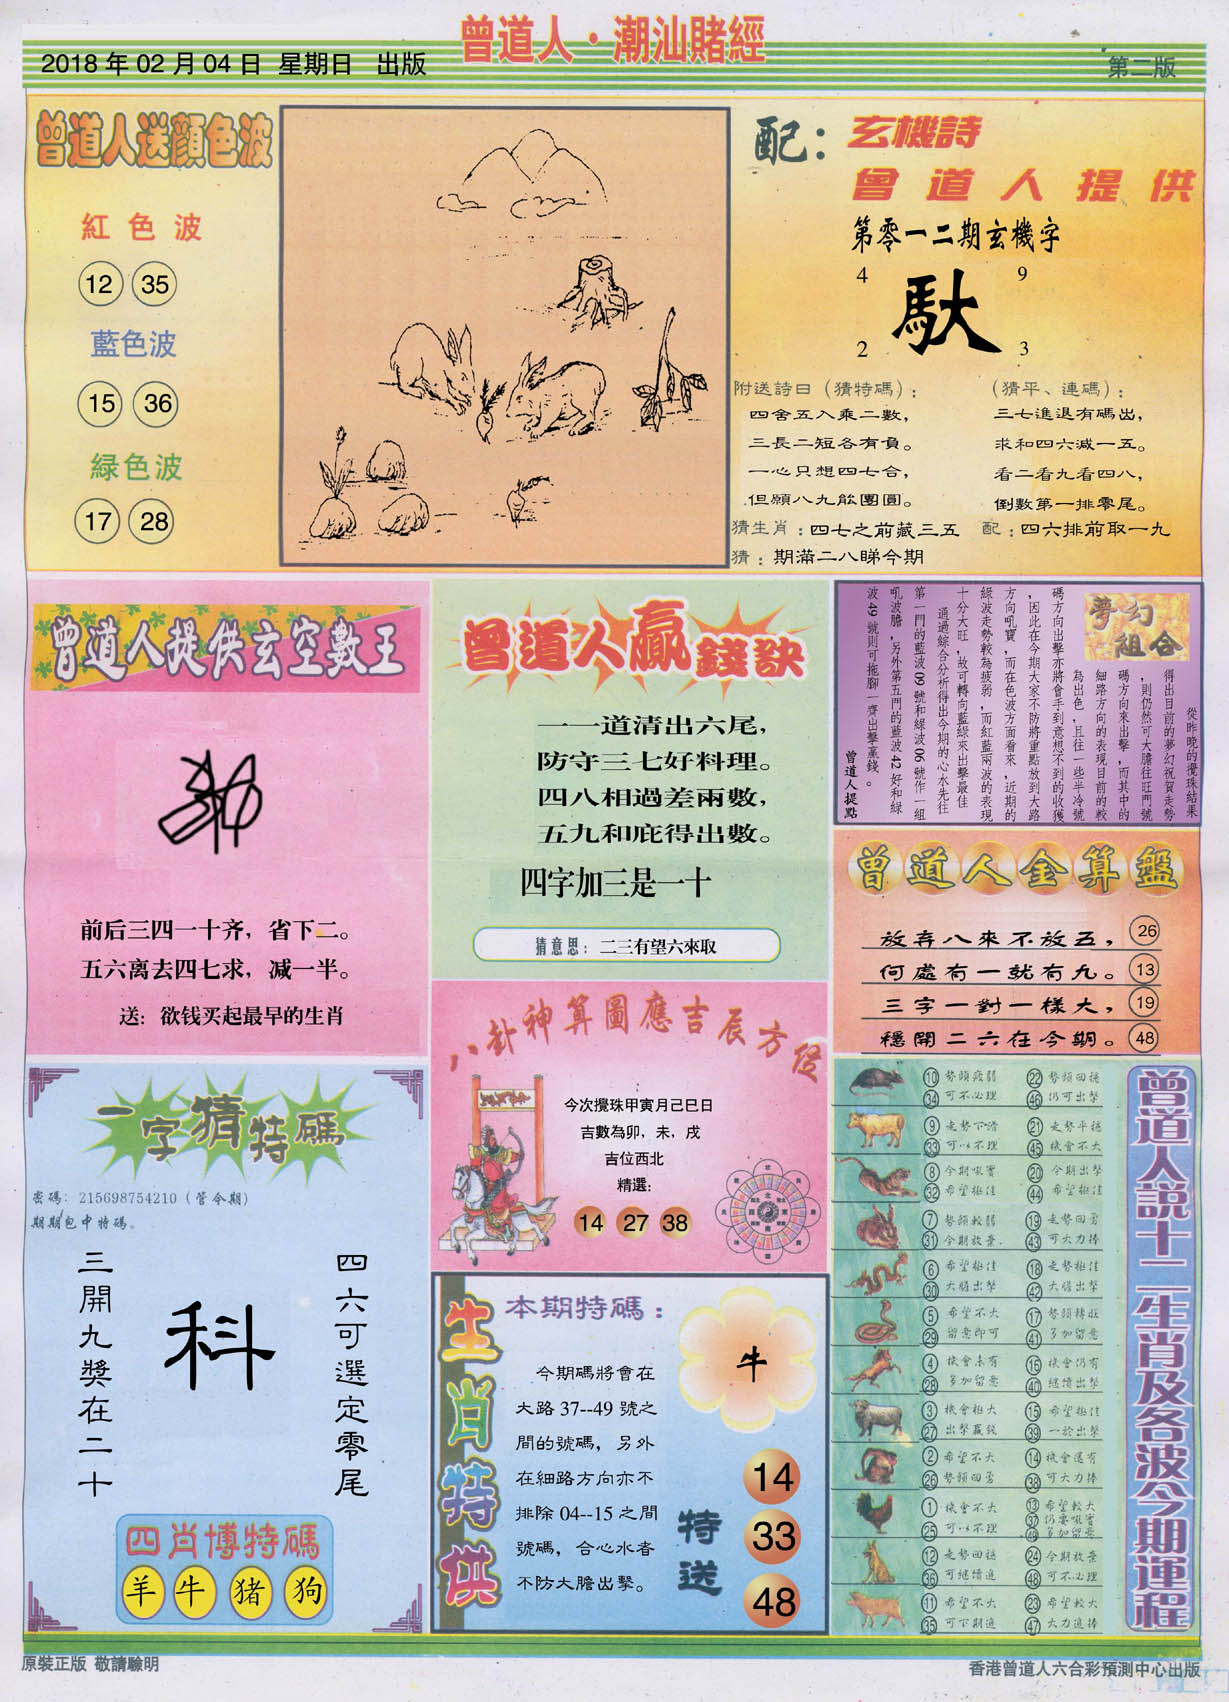 曾道人·潮汕賭經
2018 年 02 月 04 日 星期日 出版
第二版
曾道人送顔色波
紅色波
12 35
藍色波
15 36
緑色波
17 28
配：玄機詩
曾道人提供
第零一二期玄機字
4 9
馱
2 3
附送詩曰（猜特碼）：
四舍五入乘二數，
三長二短各有負。
一心只想四七合，
但願八九能團圓。
（猜平、連碼）：
三七進退有碼出，
求和四六減一五。
看二看九看四八，
倒數第一排零尾。
猜生肖：四七之前藏三五
配：四六排前取一九
猜：期滿二八睇今期
曾道人提供玄空數王
前后三四一十齐，省下二。
五六离去四七求，减一半。
送：欲钱买起最早的生肖
曾道人贏錢訣
一一道清出六尾，
防守三七好料理。
四八相過差兩數，
五九和庇得出數。
四字加三是一十
猜意思：二三有望六來取
夢幻
組合
從昨晚的攪珠結果
得出目前的夢幻祝賀走勢
，則仍然可大膽往旺門號
碼方向來出擊，而其中的
細路方向的表現目前的較
為出色，且往一些半冷號
碼方向出擊亦將會手到意想不到的收獲
，因此在今期大家不防將重點放到大路
方向吼寶，而在色波方面看來，近期的
綠波走勢較為疲弱，而紅藍兩波的表現
十分大旺，故可轉向藍綠來出擊最佳
通過綜合分析得出今期的心水先往
第一門的藍波 09 號和綠波 06 號作一組
吼波膽，另外第五門的藍波 42 好和綠
波 49 號則可拖腳一齊出擊贏錢。
曾道人提點
曾道人金算盤
放弃八來不放五， 26
何處有一就有九。 13
三字一對一樣大， 19
穩開二六在今期。 48
八卦神算圖應吉辰方位
今次攪珠甲寅月己巳日
吉數為卯，未，戌
吉位西北
精選：
14 27 38
一字猜特碼
密碼：215698754210（管今期）
期期包中特碼。
四六可選定零尾
科
三開九獎在二十
四肖博特碼
羊 牛 猪 狗
生肖特供
本期特碼：
牛
今期碼將會在
大路 37--49 號之
間的號碼，另外
在細路方向亦不
排除 04--15 之間
號碼，合心水者
不防大膽出擊。
特送
14
33
48
曾道人説十二生肖及各波今期運程
10 勢頭疲弱 22 勢頭回穩
34 可不必理 46 仍可出擊
9 走勢下滑 21 走勢平穩
33 可以不理 45 機會不大
8 今期吼寶 20 今期出擊
32 希望极佳 44 希望极佳
7 勢頭較弱 19 走勢回勇
31 今期放棄 43 可大力捧
6 希望极佳 18 走勢极佳
30 大膽出擊 42 大膽出擊
5 希望不大 17 勢頭轉旺
29 留意即可 41 多加留意
4 機會未有 16 機會仍有
28 多加留意 40 繼續出擊
3 機會极大 15 希望极佳
27 出擊贏錢 39 一於出擊
2 希望不大 14 機會還有
26 勢頭回勇 38 可大力捧
1 機會不大 13 希望較大
25 可以不理 37 仍要吼實
49 多加留意
12 走勢回穩 24 今期放棄
36 可繼續進 48 可不必理
11 希望不大 23 希望較大
35 可下期進 47 大力進捧
原裝正版 敬請驗明
香港曾道人六合彩預測中心出版